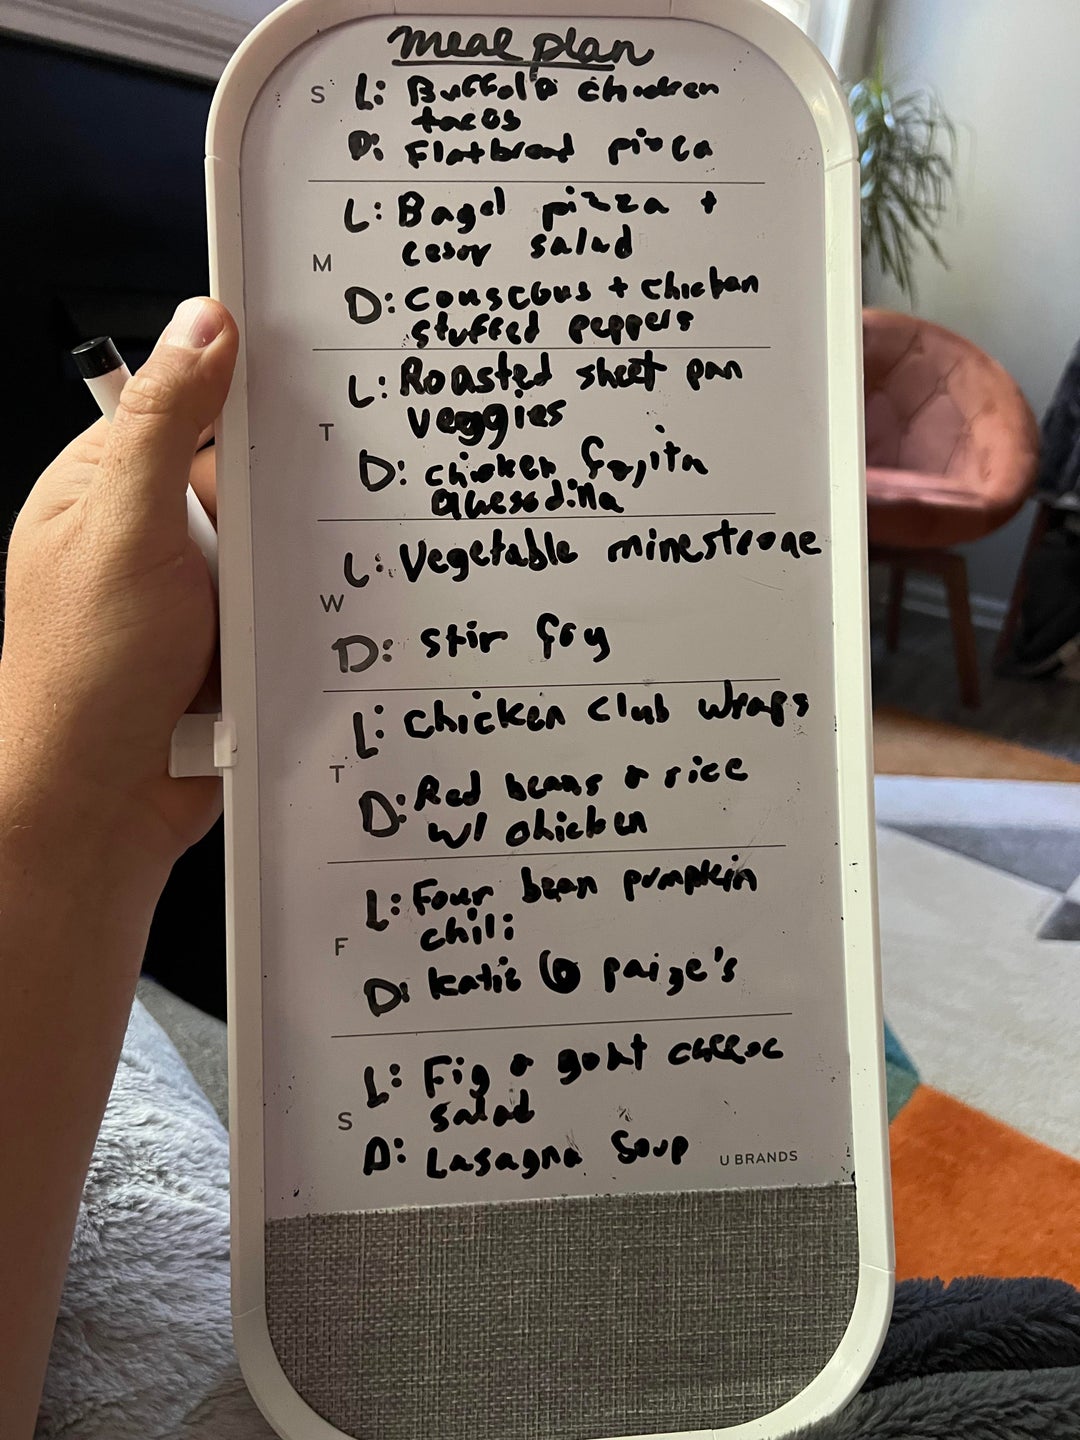 meal plan
S L: Buffalo chicken
tacos
D: Flatbread pizza
L: Bagel pizza +
cesar salad
M
D: couscous + chicken
stuffed peppers
L: Roasted sheet pan
veggies
T
D: chicken fajita
quesadilla
L: Vegetable minestrone
W
D: stir fry
L: chicken club wraps
T
D: Red beans + rice
w/ chicken
L: Four bean pumpkin
chili
F
D: Katie @ paige's
L: Fig + goat cheese
salad
S
D: Lasagna soup
U BRANDS